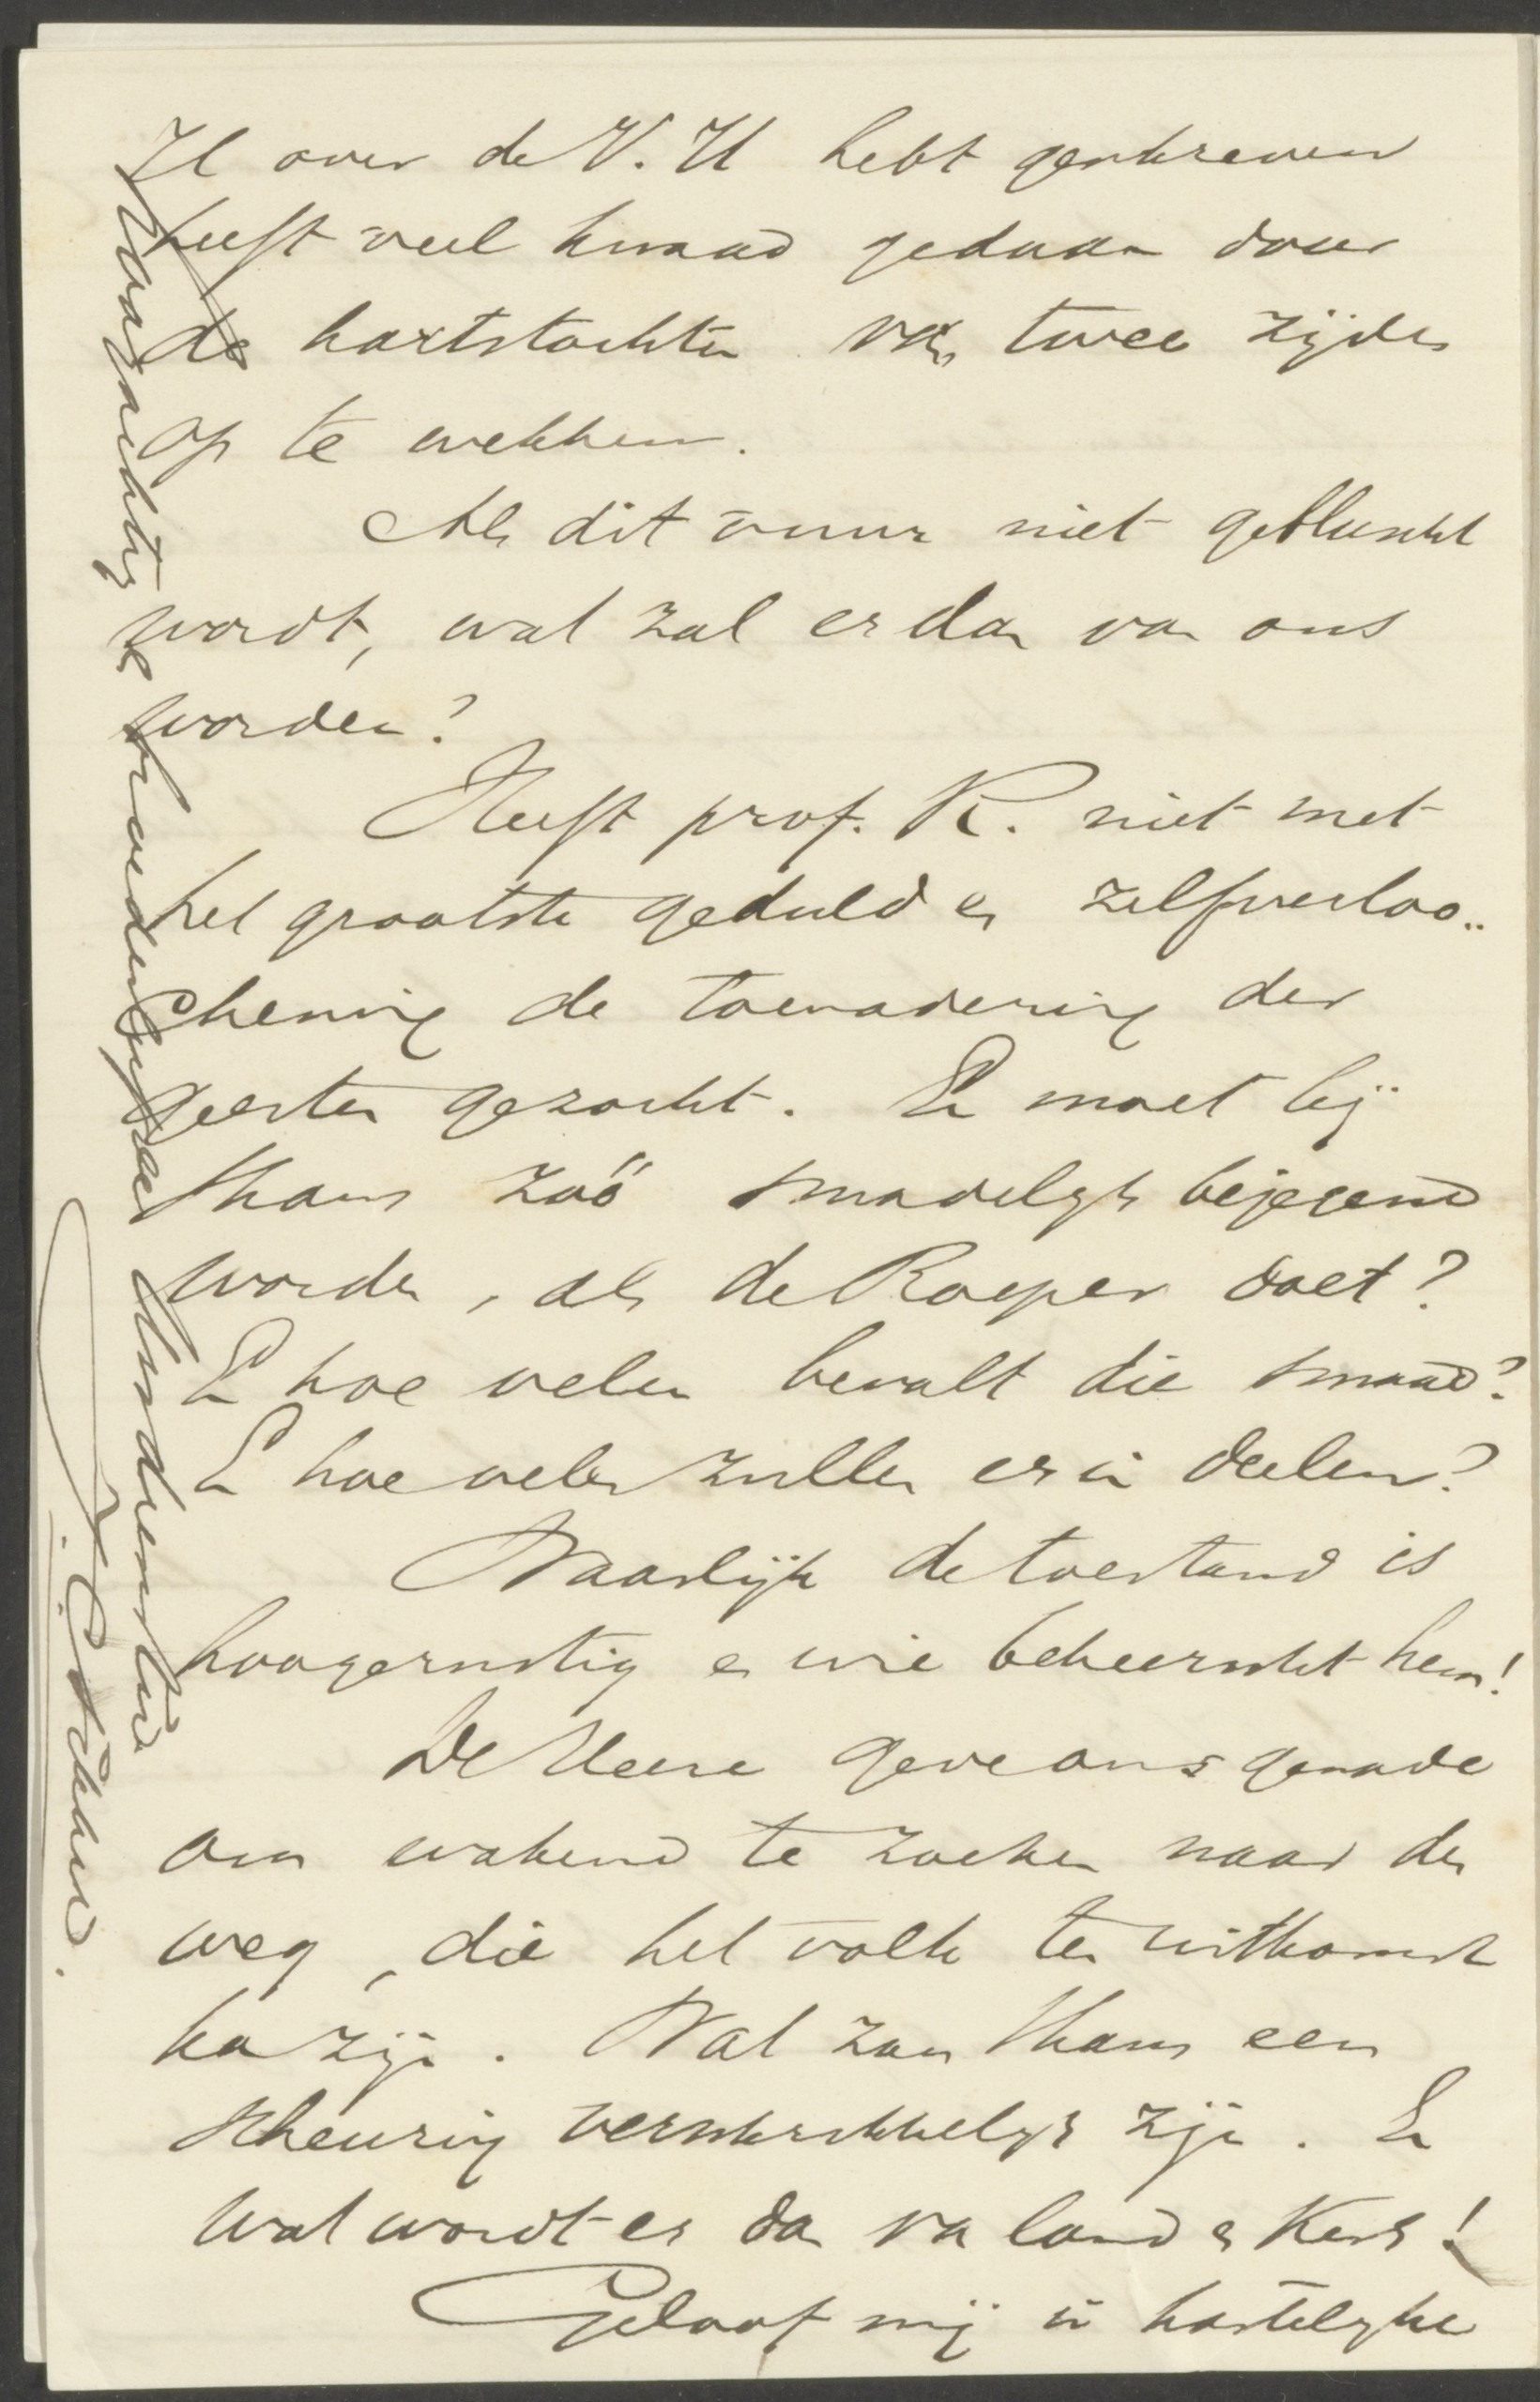 U over de V. U hebt geschreven
heeft veel kwaad gedaan door
de hartstochten van twee zijden
op te wekken.
Als dit vuur niet gebluscht
wordt, wat zal er dan van ons
worden?
Heeft prof. R. niet met
het grootste geduld en zelfverloo..
chening de toenadering der
geesten gezocht. En moet hij
thans zoo smadelijk bejegend
worden, als de Roeper doet?
En hoe velen bevalt die smaad?
En hoe velen zullen er in deelen?
Waarlijk de toestand is
hoogernstig en wie beheerscht hem!
De Heere geve ons genade
om wakend te zoeken naar den
weg, die het volk ten uitkomst
kan zijn. Wat zou thans een
scheuring verschrikkelijk zijn. En
wat wordt er dan van land en Kerk!
Geloof mij in hartelijke
hoogachting uw
dienstw
J. C. Sikkel.